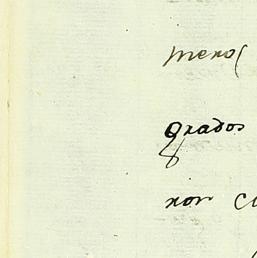 menos
grados
non cu